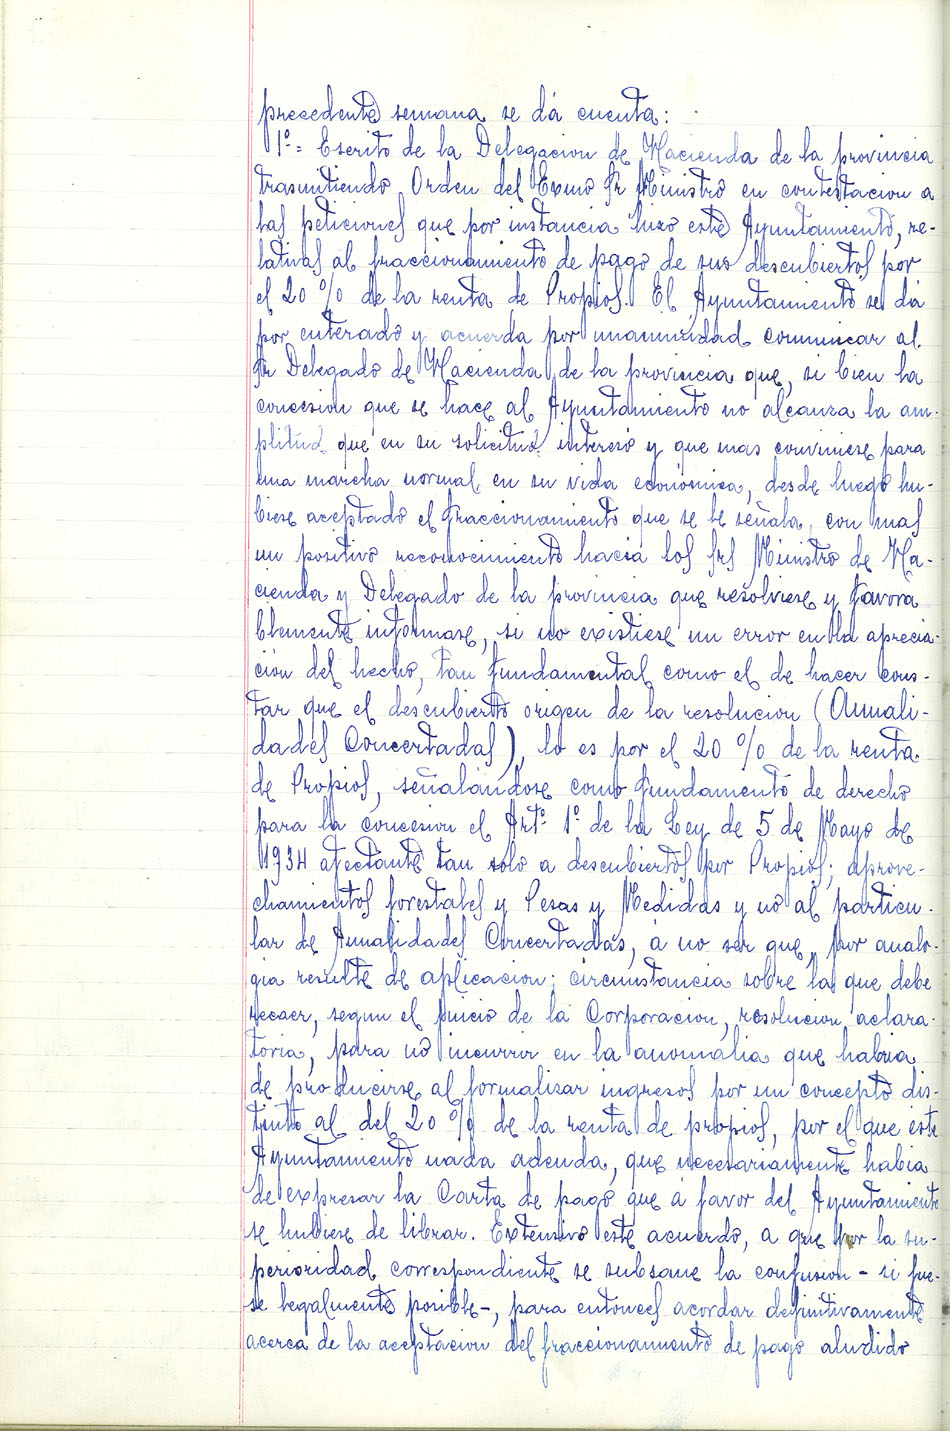 precedente semana se dá cuenta:
1º = Escrito de la Delegacion de Hacienda de la provincia
trasmitiendo Orden del Exmo Sr Ministro en contestacion a
las peticiones que por instancia hizo este Ayuntamiento, re-
lativas al fraccionamiento de pago de sus descubiertos por
el 20 % de la renta de Propios. El Ayuntamiento se dá
por enterado y acuerda por unanimidad comunicar al
Sr Delegado de Hacienda de la provincia que, si bien la
concesion que se hace al Ayuntamiento no alcanza la am-
plitud que en su solicitud interesó y que mas conviniese para
una marcha normal en su vida economica, desde luego hu-
biese aceptado el fraccionamiento que se le señala, con mas
un positivo reconocimiento hacia los Srs Ministro de Ha-
cienda y Delegado de la provincia que resolviese y favora
blemente informase, si no existiese un error en la aprecia-
cion del hecho, tan fundamental como el de hacer cons-
tar que el descubierto origen de la resolucion (Anuali-
dades Concertadas), lo es por el 20 % de la renta
de Propios, señalandose como fundamento de derecho
para la concesion el Artº 1º de la Ley de 5 de Mayo de
1934 afectante tan solo a descubiertos por Propios; aprove-
chamientos forestales y Pesas y Medidas y no al particu-
lar de Anualidades Concertadas, á no ser que, por analo-
gia resulte de aplicacion; circunstancia sobre la que debe
recaer, segun el juicio de la Corporacion, resolucion aclara-
toria, para no incurrir en la anomalia que habria
de producirse al formalizar ingresos por un concepto dis-
tinto al del 20 % de la renta de propios, por el que este
Ayuntamiento nada adeuda, que necesariamente habia
de expresar la Carta de pago que á favor del Ayuntamiento
se hubiese de librar. Extensivo este acuerdo, a que por la su-
perioridad correspondiente se subsane la confusion - si fue-
se legalmente posible -, para entonces acordar definitivamente
acerca de la aceptacion del fraccionamiento de pago aludido